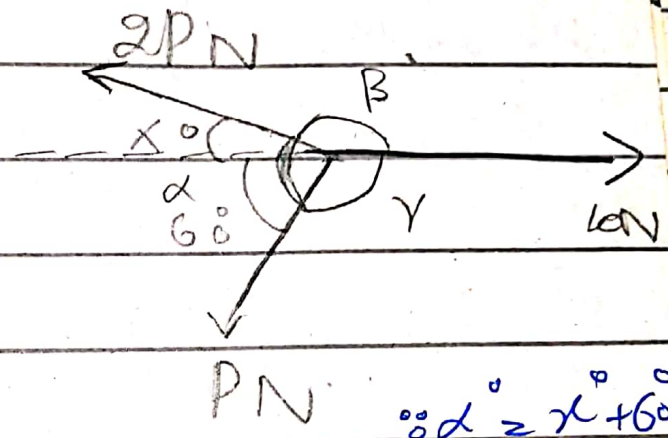 2PN
β
x°
α
60°
γ
10N
PN
∴ α° = x° + 60